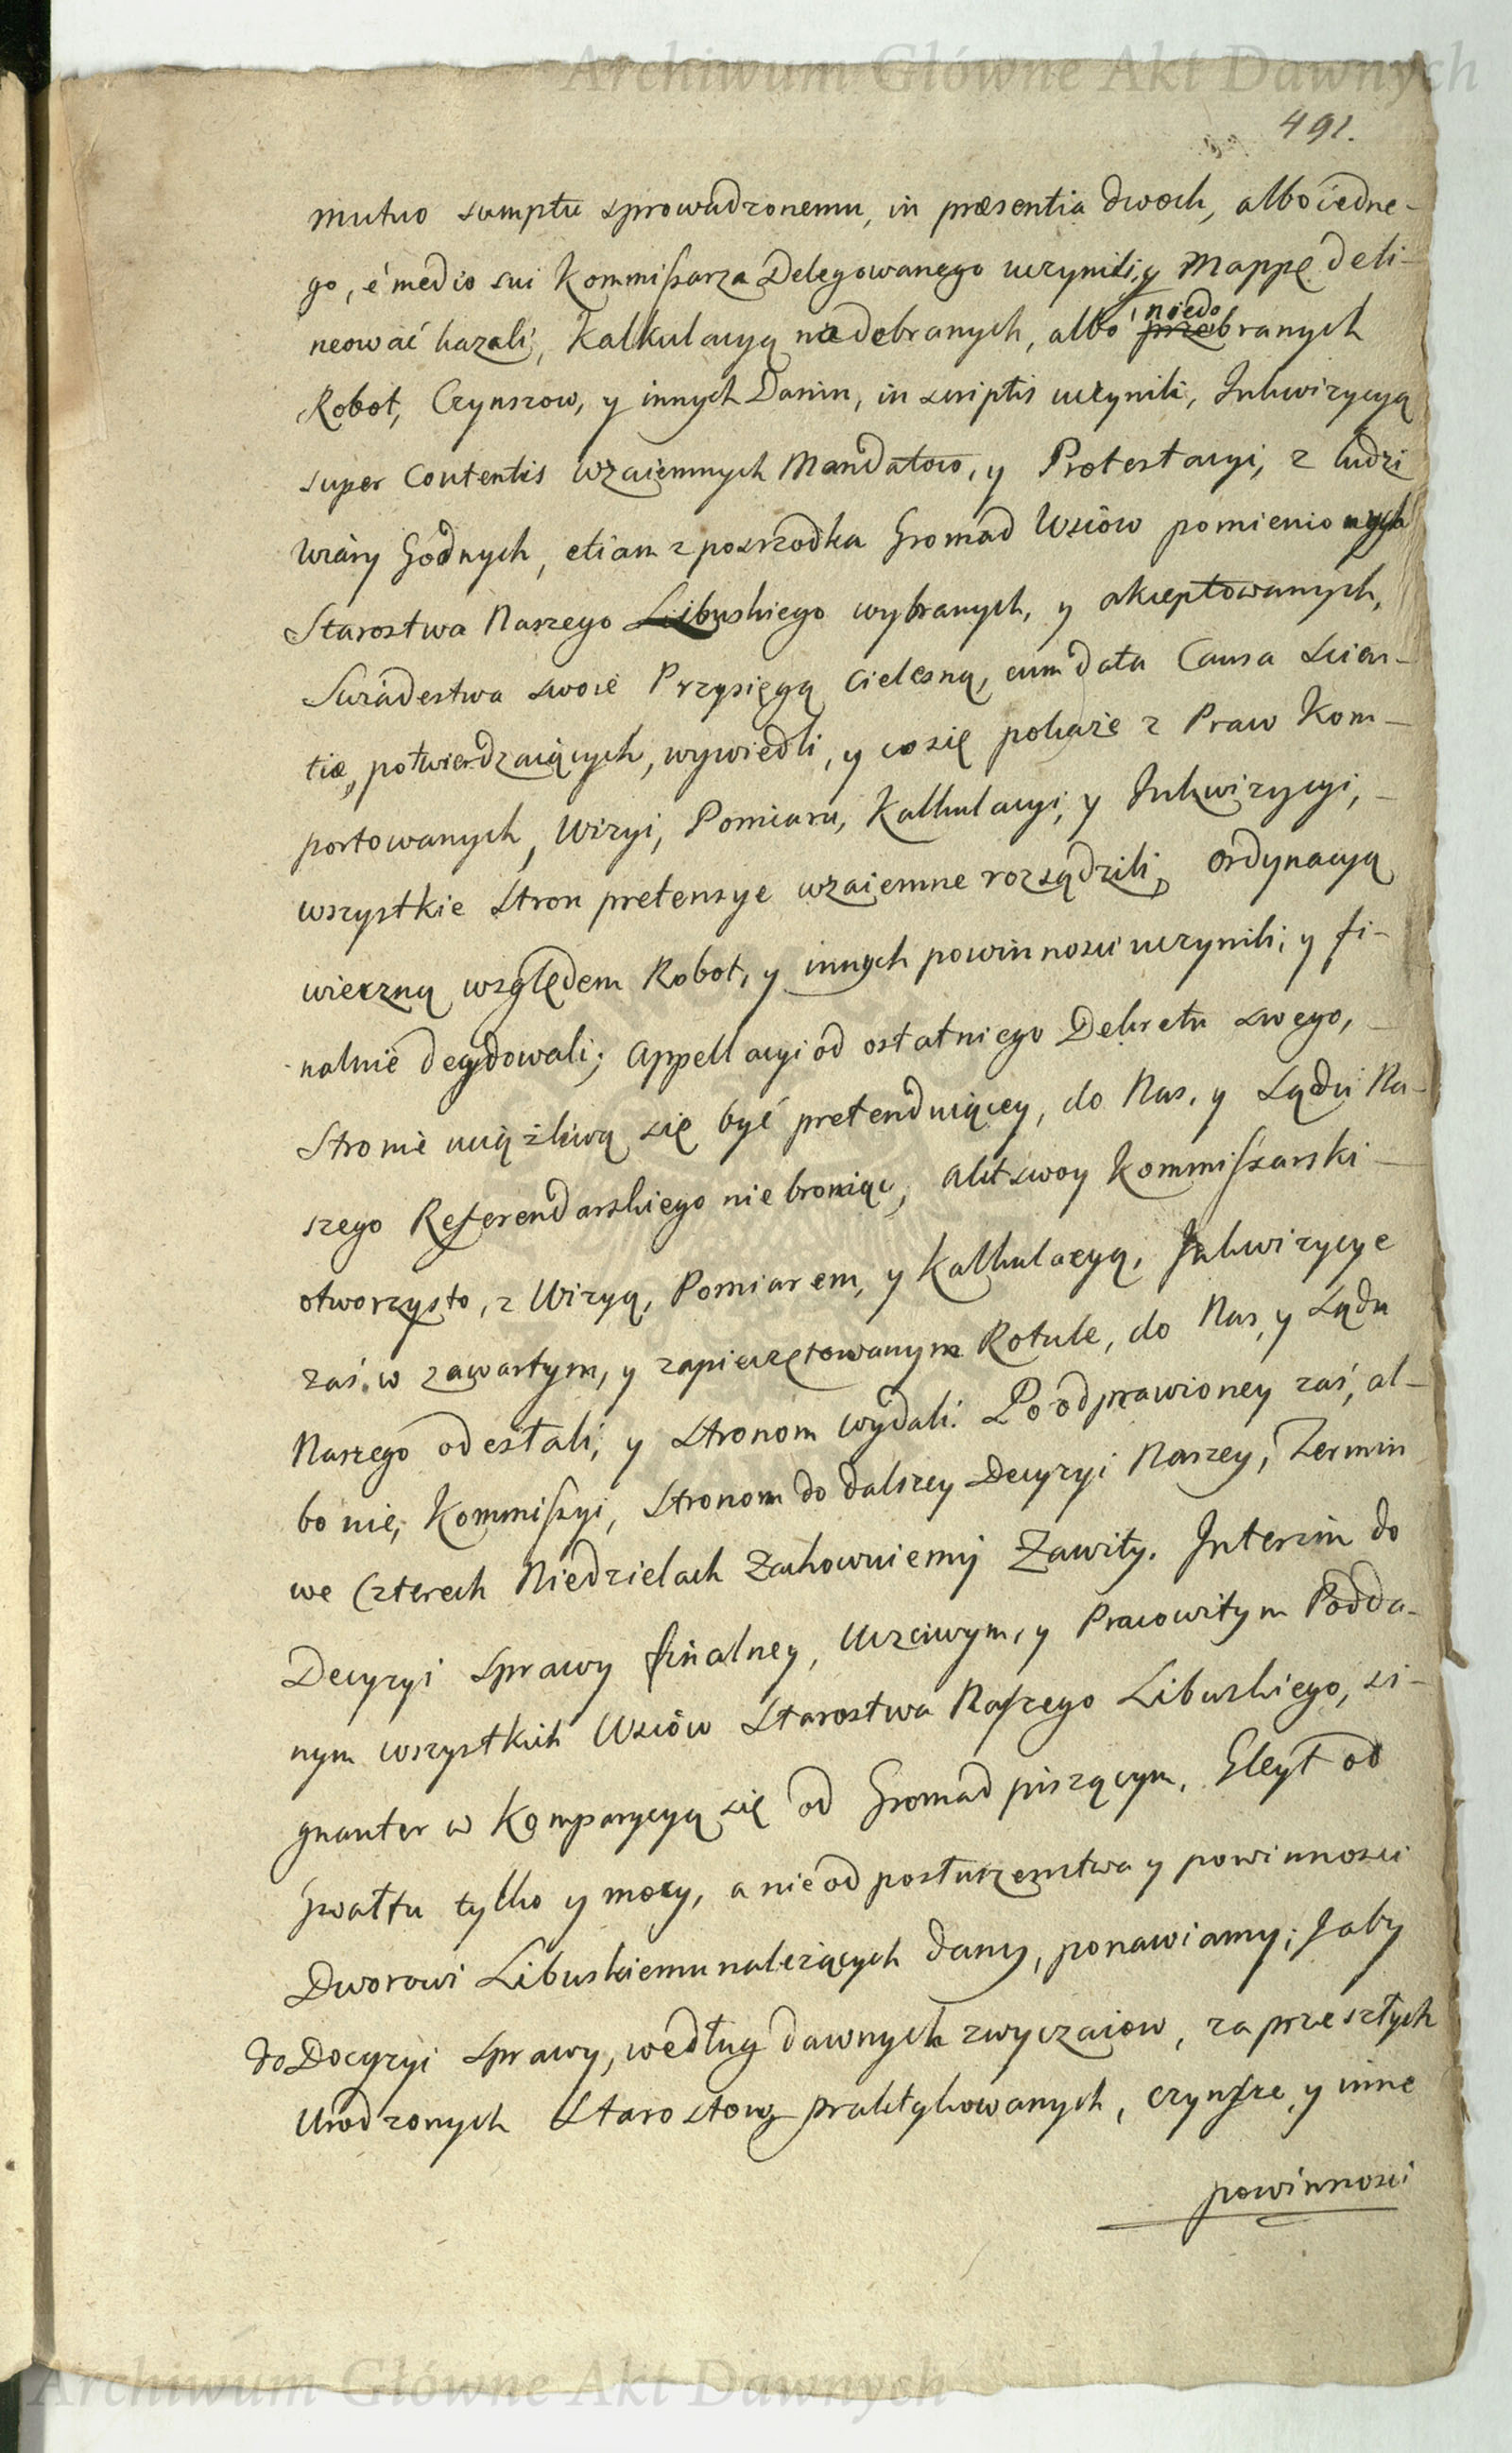 Archiwum Główne Akt Dawnych
491.
mutuo sumptu sprowadzonemu, in præsentia dwoch, albo iedne-
go, é medio sui Kommißarza Delegowanego uczynili, y Mappę deli-
neować kazali, Kalkulacyą nadebranych, albo niedo przebranych
Robot, Czynszow, y innych Danin, in scriptis uczynili, Inkwizycyą
super Contentis wzaiemnych Mandatow, y Protestacyi, z ludzi
wiáry Godnych, etiam z posrzodka Gromad Wsiów pomienionych
Starostwa Naszego Libuskiego wybranych, y akceptowanych,
Swiadestwa swoie Przysięgą Cielesną, cum data Causa Scien-
tiæ, potwierdzaiących, wywiedli, y co się pokaże z Praw Kom-
portowanych, Wizyi, Pomiaru, Kalkulacyi, y Inkwizycyi,
wszystkie Stron pretensye wzaiemne rozsądzili, Ordynacyą
wieczną względem Robot, y innych powinnosci uczynili, y fi-
nalnie decydowali; Appellacyi od ostatniego Dekretu swego,
Stronie uciążliwą się być pretenduiącey, do Nas, y Sądu Na-
szego Referendarskiego nie broniąc, Akt swoy Kommißarski
otworzysto, z Wizyą, Pomiarem, y Kalkulacyą, Inkwizycye
zaś w zawartym, y zapieczętowanym Rotule, do Nas, y Sądu
Naszego odesłali, y Stronom wydali. Po odprawioney zaś, al-
bo nie, Kommißyi, Stronom do dalszey Decyzyi Naszey, Termin
we Czterech Niedzielach Zachowuiemy Zawity. Interim do
Decyzyi Sprawy finalney, Uczciwym, y Pracowitym Podda-
nym wszystkich Wsiów Starostwa Naszego Libuskiego, si-
gnanter w Komparycyą się od Gromad piszącym, Gleyt od
Gwałtu tylko y mocy, a nie od posłuszenstwa y powinnosci
Dworowi Libuskiemu należących dany, ponawiamy; Jaby
do Decyzyi Sprawy, według dawnych zwyczaiow, za przeszłych
Urodzonych Starostow praktykowanych, czynsze, y inne
powinnosci
Archiwum Główne Akt Dawnych